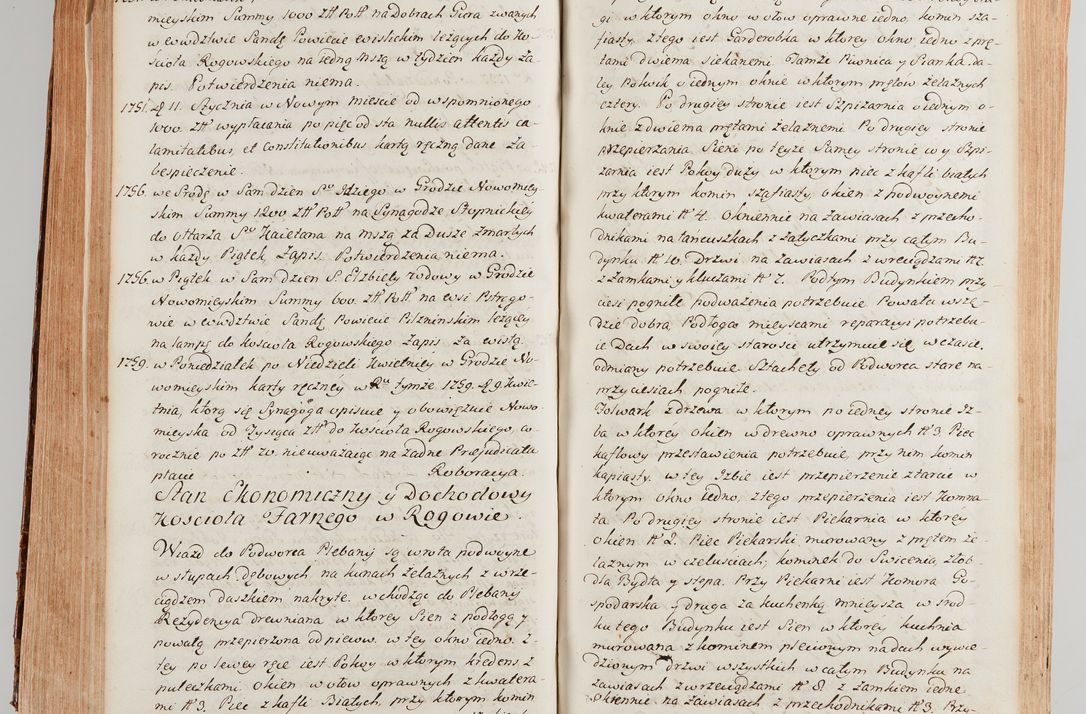 mieyskim Summy 1000 Złł Poll na Dobrach Gura zwanych
w ewudztwie Sandō Powiecie Wislickim leżących do Ko-
scioła Rogowskiego na Iedną Mszą w tydzien każdy Za-
pis. Potwierdzenia niema.
1751. d 11. Stycznia w Nowym miescie od wspomnionego
1000. Złł wypłacania po pięc od sta nullis attentis ca-
lamitatibus, et Constitutionibus kartą ręczną dane Za-
bespieczenie.
1756. we Srodę w Sam dzien Sgo Idziego w Grodzie Nowomiey-
skim Summy 1200 Złł Poll na Synagodze Stopnickiéy
do ołtarza Sgo Kaietana na mszą za Dusze Zmarłych
w każdy Piątek Zapis. Potwierdzenia niema.
1756. w Piątek w Sam dzien S. Elżbiety rodowy w Grodzie
Nowomieyskim Summy 600. Złł Poll na wsi Pstrogo-
wie w ewudztwie Sandō Powiecie Pilznińskim leżącey
na lampę do koscioła Rogowskiego Zapis Za wistą.
1759. w Poniedziałek po Niedzieli Kwietniéy w Grodzie No-
womieyskim karty ręczney w Ru tymże 1759. d 9. Kwie-
tnia, którą się Synagoga opisuie y obowiązuie Nowo-
mieyska od Tysiąca Złł do Koscioła Rogowskiego, co-
rocznie po Złł 70. nieuważaiąc na żadne Præjudicata
płacic. Roboracya.
Stan Ekonomiczny y Dochodowy
Koscioła Farnego w Rogowie.
Wiazd do Podworca Plebanij są wrota podwoyne
w słupach dębowych na kunach żelaznych z wrze-
ciądzem daszkiem nakryte. wchodząc do Plebanij
Rezydencya drewniana w ktorey Sien z podłogą y
powałą przepierzona od piecow. w tey okno iedno. z
tey po lewey ręce iest Pokoy w ktorym kredens z
pułeczkami okien w ołow oprawnych z kwatera-
mi N 3. Piec z kafli Białych, przy ktorym komin
gi w ktorym okno w ołow oprawne iedno, komin sza-
fiasty, z tego iest Garderobka w ktorey okno iedno z prę-
tami dwiema siekanemi. Tamże Piwnica y Pranka. da-
ley Pokoik o iednym oknie w ktorym prętow żelaznych
cztery. Po drugiey stronie iest Szpizarnia o iednym o-
knie, z dwiema prętami żelaznemi. Po drugiey stronie
przepierzania Sieni po teyże Samey stronie co y Szpi-
zarnia iest Pokoy duży, w ktorym piec z kafli białych
przy ktorym komin szafiasty, okien z podwoynemi
kwaterami N 4. Okiennic na Zawiasach z przecho-
dnikami na łancuszkach z Zatyczkami przy całym Bu-
dynku N 10. Drzwi na Zawiasach z wrzeciądzami N 7.
z Zamkami y kluczami N 7. Pod tym Budynkiem przy-
ciesi pogniłe podważenia potrzebuie Powała wszę-
dzie dobra. Podłoga mieyscami reparacyi potrzebu-
ie Dach w swoiey starosci utrzymuie się, w czasie
odmiany potrzebuie Sztachety od Podworca stare na
przyciesiach pogniłe.
Folwark z drzewa w ktorym po iedney stronie Iz-
ba w ktorey okien w drewno oprawnych N 3. Piec
kaflowy przestawienia potrzebuie przy nim komin
kapiasty. w tey Izbie iest przepierzenie z tarcic w
ktorym okno iedno, z tego przepierzenia iest Komna-
ta Po drugiey stronie iest Piekarnia w ktorey
okien N 2. Piec Piekarski murowany z prętem że-
laznym w czeluściach, kominek do Swiecenia, żłob
dla Bydła y stępa. Przy Piekarni iest Komora Go-
spodarska y druga za kuchenką mnieysza. w środ-
ku tego Budynku iest Sien w ktorey kuchnia
murowana z kominem plecionym na dach wywie-
dzionym drzwi wszystkich w całym Budynku na
zawiasach z wrzeciądzami N 8 z Zamkiem iedne
okiennic na Zawiasach z przechodnikami N 3. Przy-